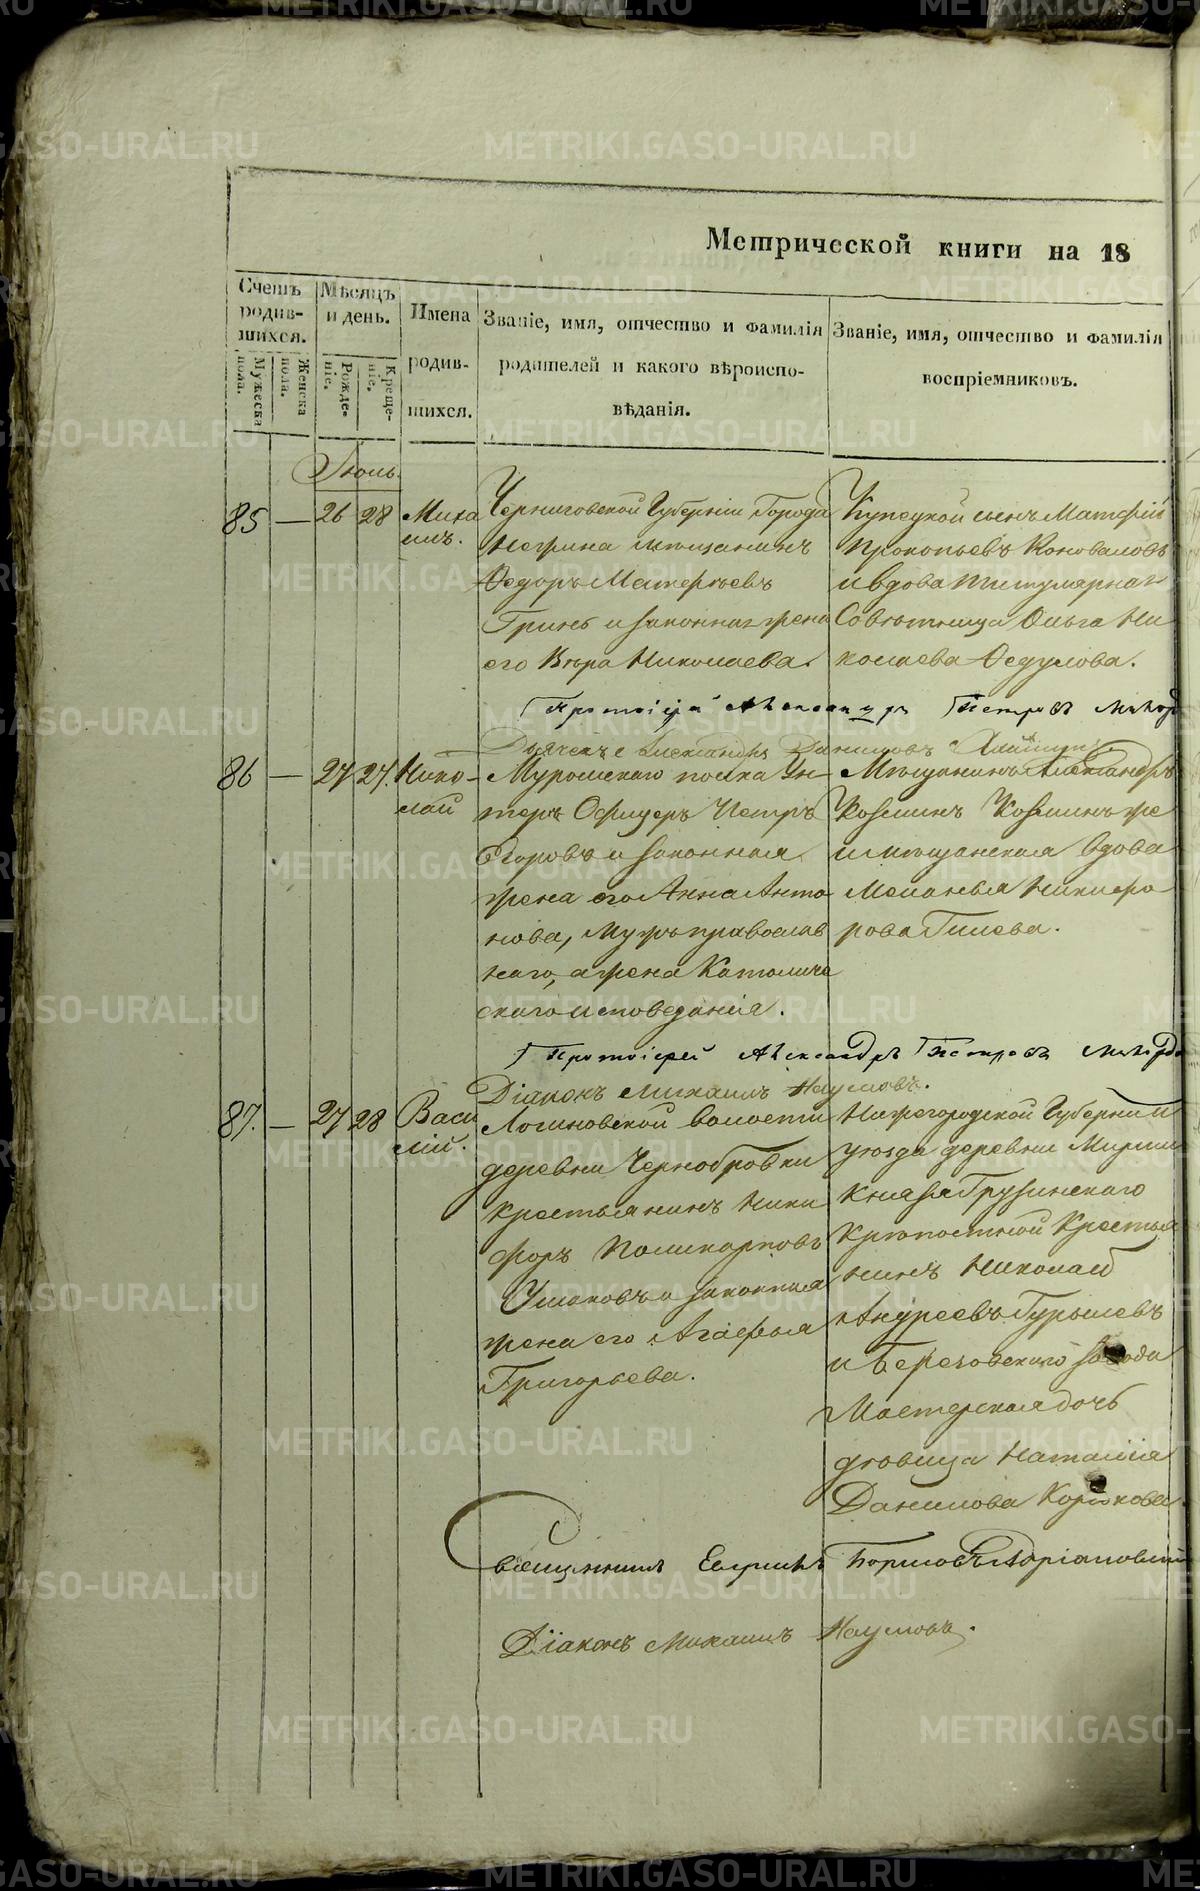 Метрической книги на 18
Счетъ родившихся.
Мужеска пола.
Женска пола.
Мѣсяцъ и день.
Рожденіе.
Крещеніе.
Имена родившихся.
Званіе, имя, отчество и фамилія
родителей и какого вѣроиспо-
вѣданія.
Званіе, имя, отчество и фамилія
воспріемниковъ.
Іюль.
85 — 26 28 Миха
илъ.
Черниговской Губерніи Города
Нежина мѣщанинъ
Ѳедоръ Матвѣевъ
и законная жена
его Вѣра Николаева.
Купецкой сынъ Матфей
Прокопьевъ Коноваловъ
и вдова титулярная
Совѣтница Ольга Ни
колаева Ѳедулова.
Протоіерей Александръ Петровъ
Дьячекъ Александръ
86 — 27 27. Нико-
лай
Муромскаго полка Ун-
теръ Офицеръ Петръ
Егоровъ и законная
жена его Анна Анто
нова, мужъ православ
наго, а жена Католиче
скаго исповеданія.
Мѣщанинъ Александръ
Козминъ Козминъ же
и мѣщанская вдова
Меланья Никифо
рова Гилева.
Протоіерей Александръ Петровъ
Діаконъ Михаилъ Наумовъ.
87. — 27 28 Васи
лій.
Логиновской волости
деревни Чернобровки
крестьянинъ Ники
форъ Поликарповъ
Ушаковъ и законная
жена его Агафья
Григорьева.
Нижегородской Губерніи
уезда деревни
Князя Грузинскаго
крѣпостной Крестья
нинъ Николай
Андреевъ Гурылевъ
и Березовскаго завода
Мастерская дочь
дѣвица Наталія
Данилова Корюкова.
Священникъ
Діаконъ Михаилъ Наумовъ.
METRIKI.GASO-URAL.RU